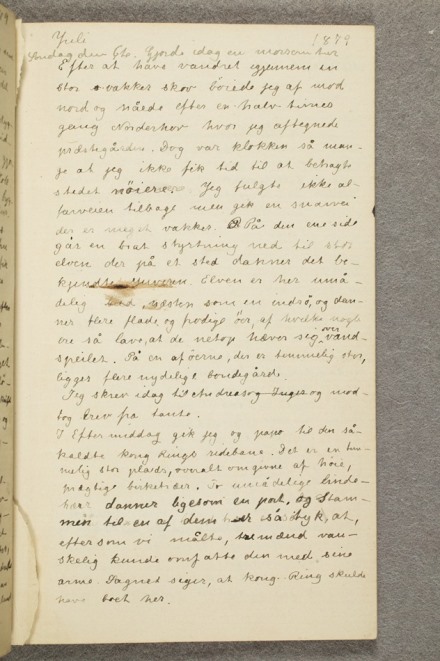 Juli 1879
Søndag den 6te. Gjorde idag en morsom tur
Efter at have vandret igjennem en
stor vakker skov bøiede jeg af mod
nord og nåede efter en halv times
gang Norderhov hvor jeg aftegnede
præstegården. Dog var klokken så man-
ge at jeg ikke fik tid til at betragte
stedet nøiere. Jeg fulgte ikke al-
farveien tilbage men gik en snarvei
der er meget vakker. På den ene side
går en brat styrtning ned til stor
elven der på et sted danner det be-
kjendte juveren. Elven er her umå-
delig bred næsten som en indsø, og dan-
ner flere flade, og frodige øer, af hvilke nogle
ere så lave, at de netop hæver sig over vand-
speilet. På en af øerne, der er temmelig stor,
ligger flere nydelige bondegårde.
Jeg skrev idag til Andreas og Inga og mod-
tog brev fra tante.
I Eftermiddag gik jeg og papa til den så-
kaldte kong Rings ridebane. Det er en tem-
melig stor plads, overalt omgivne af høie,
prægtige birketrær. To umådelige linde-
trær danner ligesom en port, og stam-
men til en af dem er så tyk, at,
eftersom vi målte, to mænd van-
skelig kunde omfatte den med sine
arme. Sagnet siger, at kong Ring skulde
have boet her.